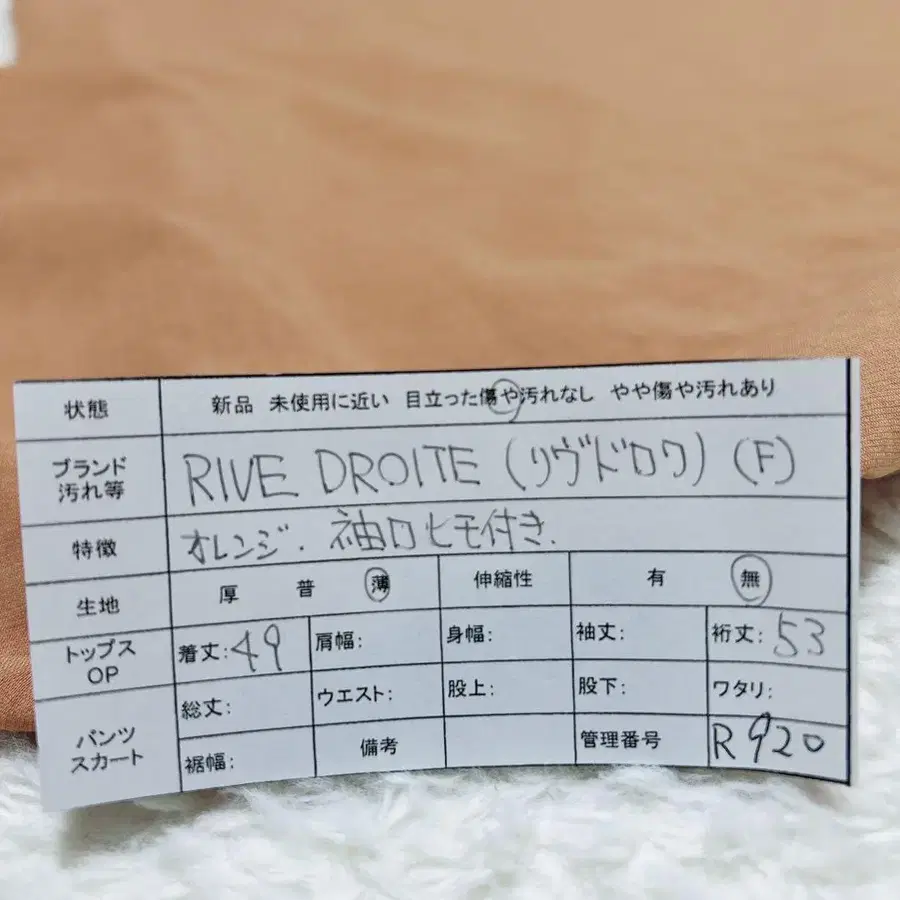 状態 新品 未使用に近い 目立った傷や汚れなし やや傷や汚れあり
ブランド
汚れ等 RIVE DROITE (リヴドロワ) (F)
特徴 オレンジ. 袖口ヒモ付き.
生地 厚 普 薄 伸縮性 有 無
トップス
OP 着丈:49 肩幅: 身幅: 袖丈: 裄丈:53
パンツ
スカート 総丈: ウエスト: 股上: 股下: ワタリ:
裾幅: 備考 管理番号 R920